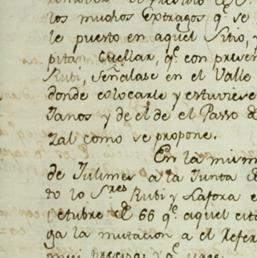 los muchos extragos q.e se
le puerto en aquel Sitio, y
pitan Cuellar, q.e con presen
Rubi, Señalase en el Valle
donde colocarle y estuviese
Janos y de el de el Passo d
zal como se propone.
En la mism
de Julimes a la Junta
to lo S.res Rubi y Lafora e
Octubre de 66 q.e aquel citi
ga la mutacion a el Refer
mui precisa y